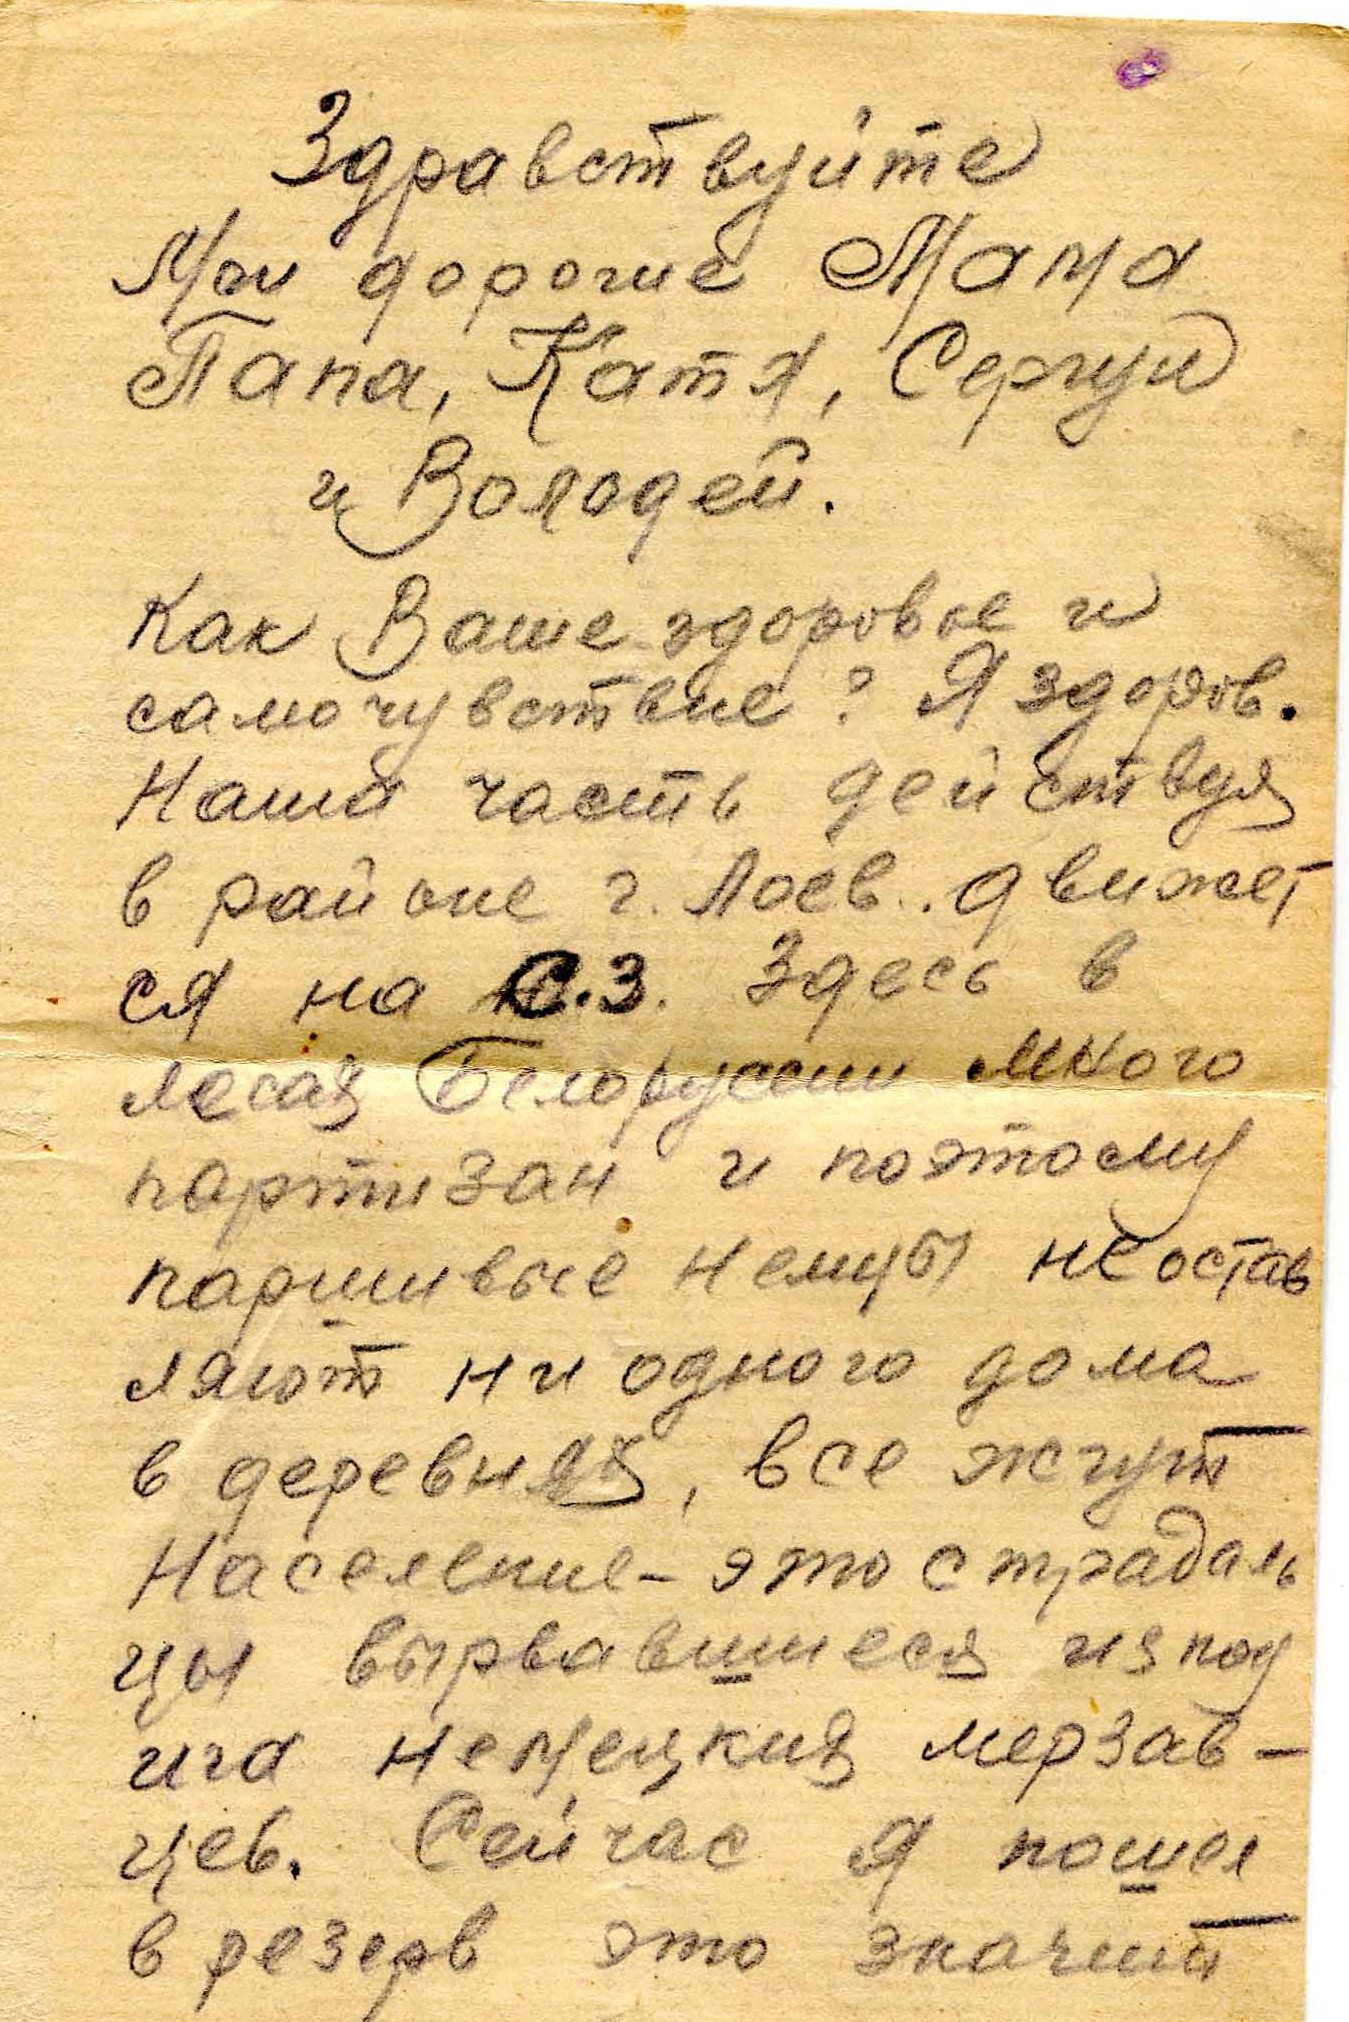 Здравствуйте
Мои дорогие Мама
Папа, Катя, Сергуй
и Володей.
Как Ваше здоровье и
самочувствие? Я здоров.
Наша часть действуя
в районе г. Лоев. движет
ся на С.З. Здесь в
лесах Белоруссии много
партизан и поэтому
паршивые немцы не остав
ляют ни одного дома
в деревнях, все жгут
Население - это страдаль
цы вырвавшиеся из под
ига немецких мерзав-
цев. Сейчас я пошел
в резерв это значит